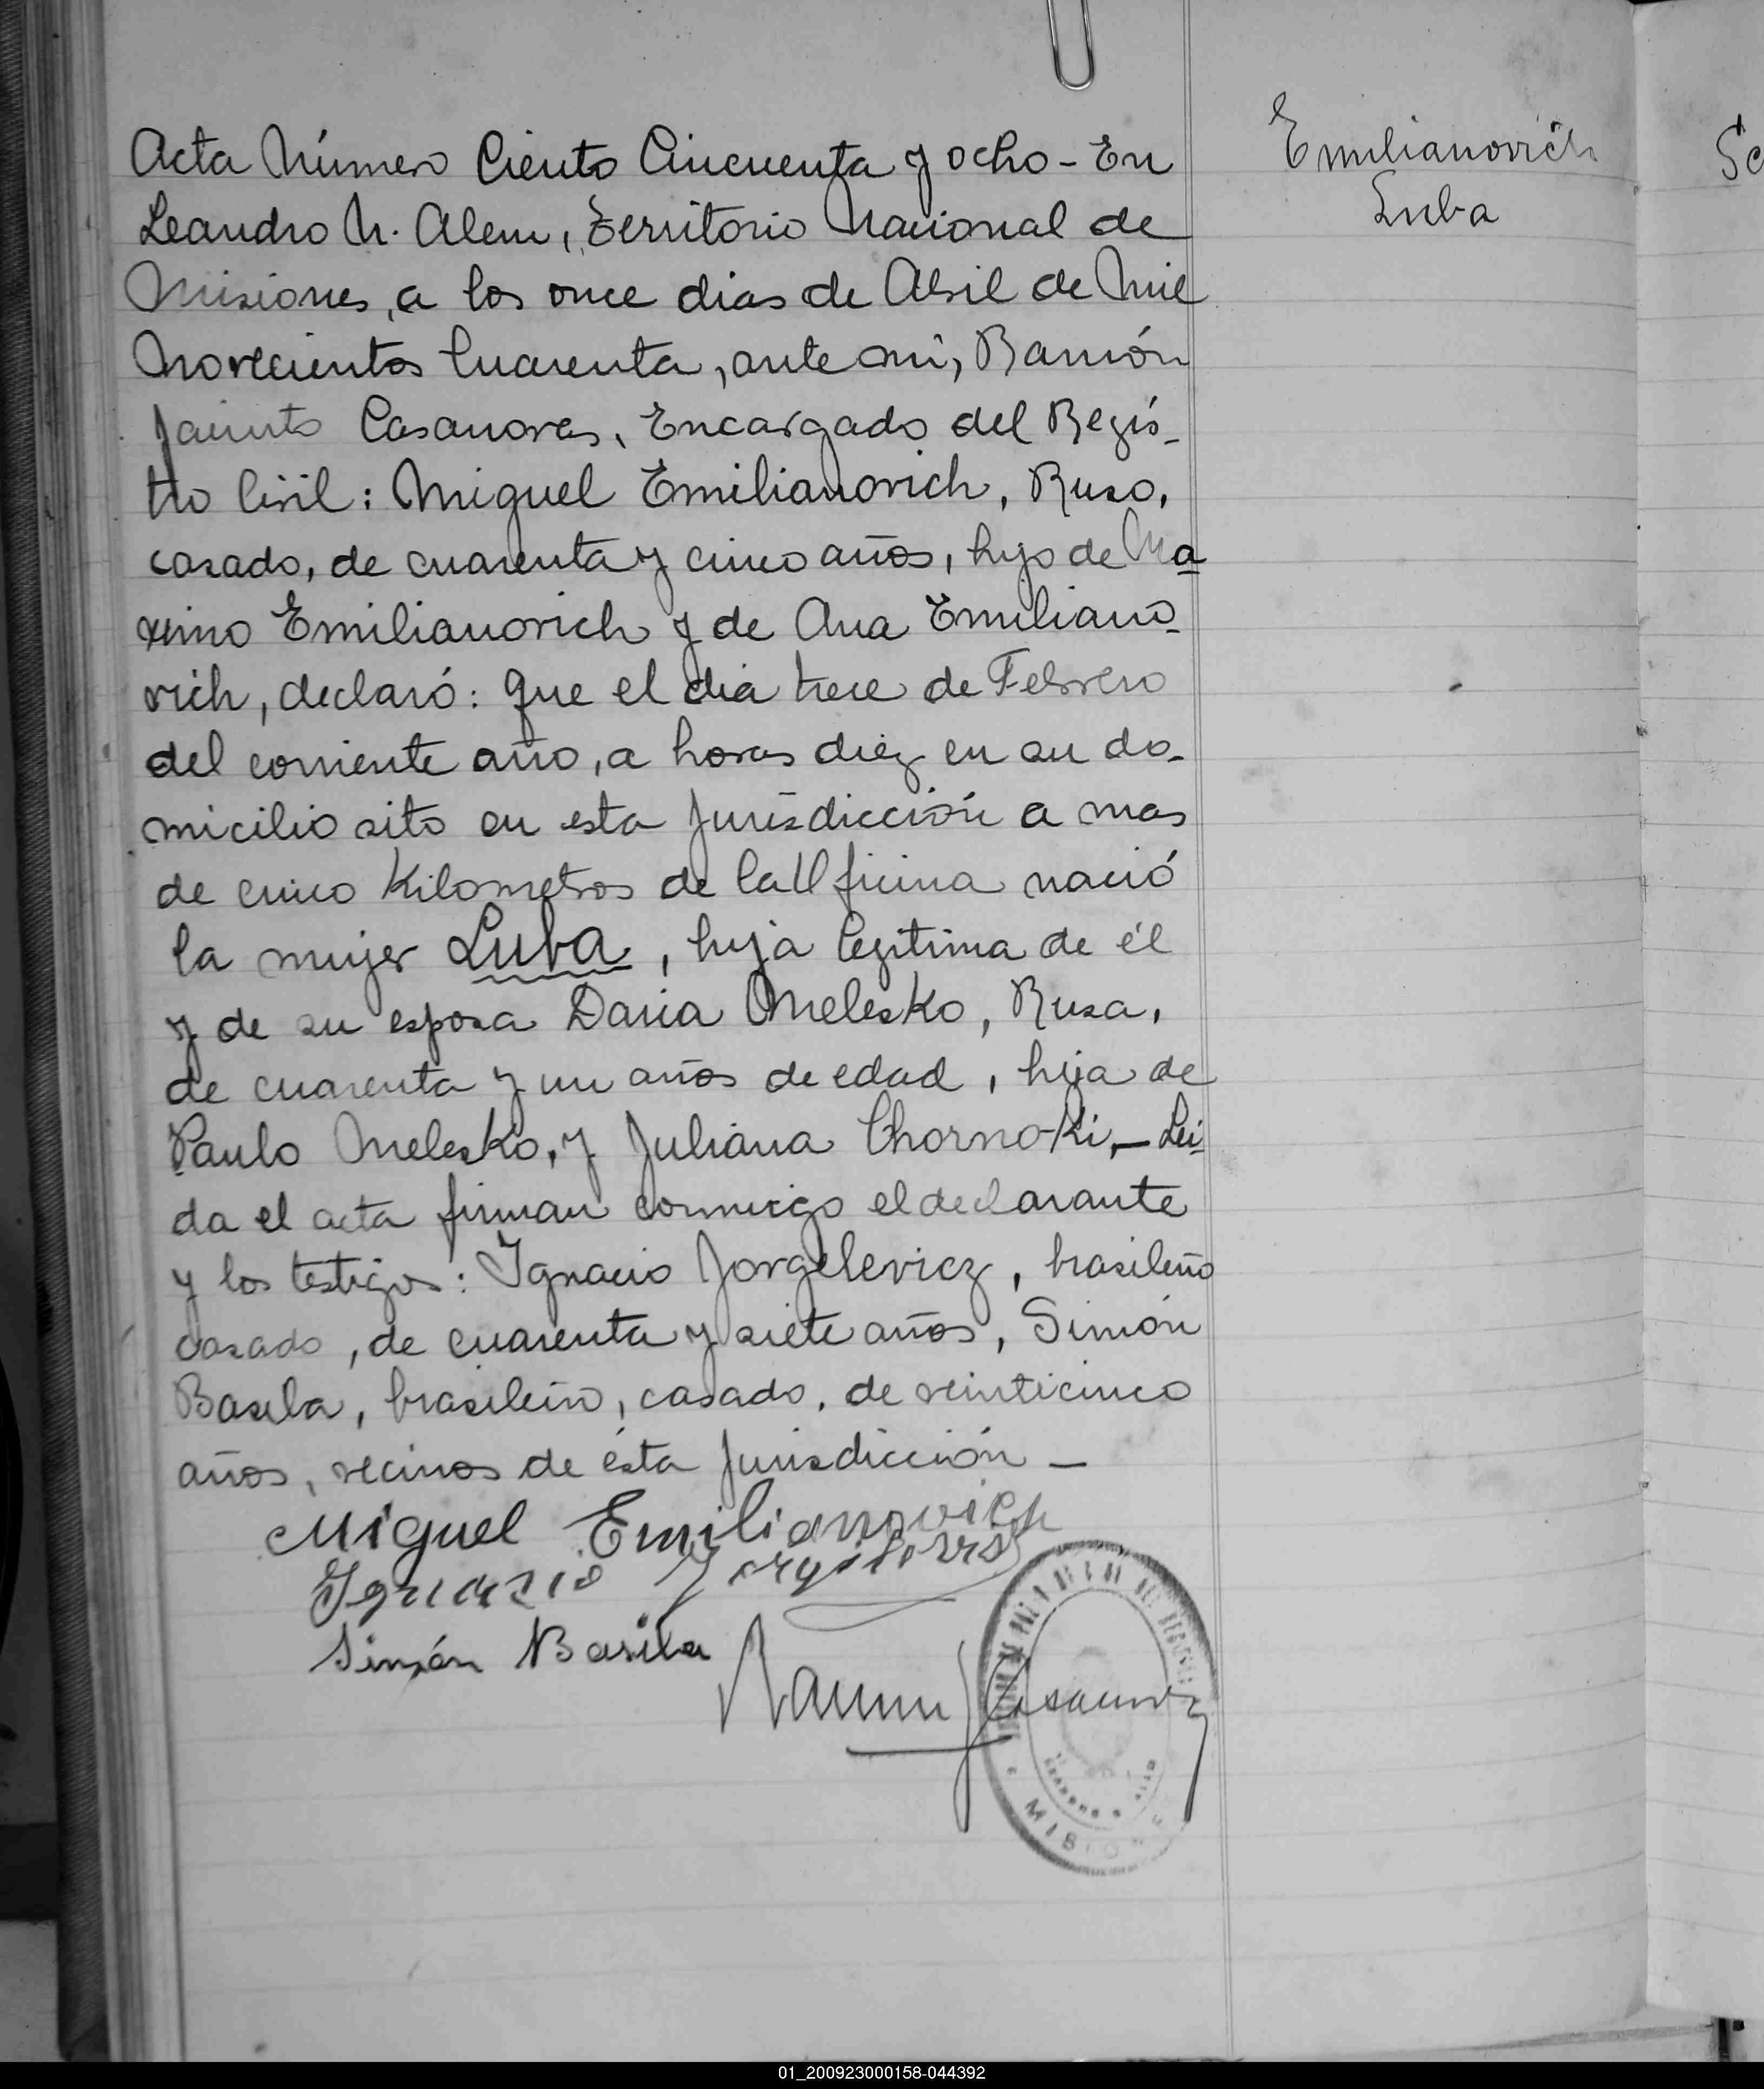 Acta Número Ciento Cincuenta y ocho - En
Leandro N. Alem, Territorio Nacional de
Misiones, a los once dias de Abril de Mil
Novecientos Cuarenta, ante mi, Ramón
Jacinto Casanovas, Encargado del Regis-
tro Civil: Miguel Emilianovich, Ruso,
casado, de cuarenta y cinco años, hijo de Ma
ximo Emilianovich y de Ana Emiliano-
vich, declaró: que el dia trece de Febrero
del corriente año, a horas diez en su do-
micilio sito en esta Jurisdicción a mas
de cinco Kilometros de la Oficina nació
la mujer Luba, hija legitima de él
y de su esposa Daria Melesko, Rusa,
de cuarenta y un años de edad, hija de
Paulo Melesko, y Juliana Chornoki, - Lei-
da el acta firman conmigo el declarante
y los testigos: Ignacio Jorgelevicz, brasileño
casado, de cuarenta y siete años, Simón
Basila, brasileño, casado, de veinticinco
años, vecinos de ésta Jurisdicción -
Miguel Emilianovich
Ignacio
Simón Basila
Ramon J Casanovas
MISIONES
Emilianovich
Luba
Se
01_200923000158-044392